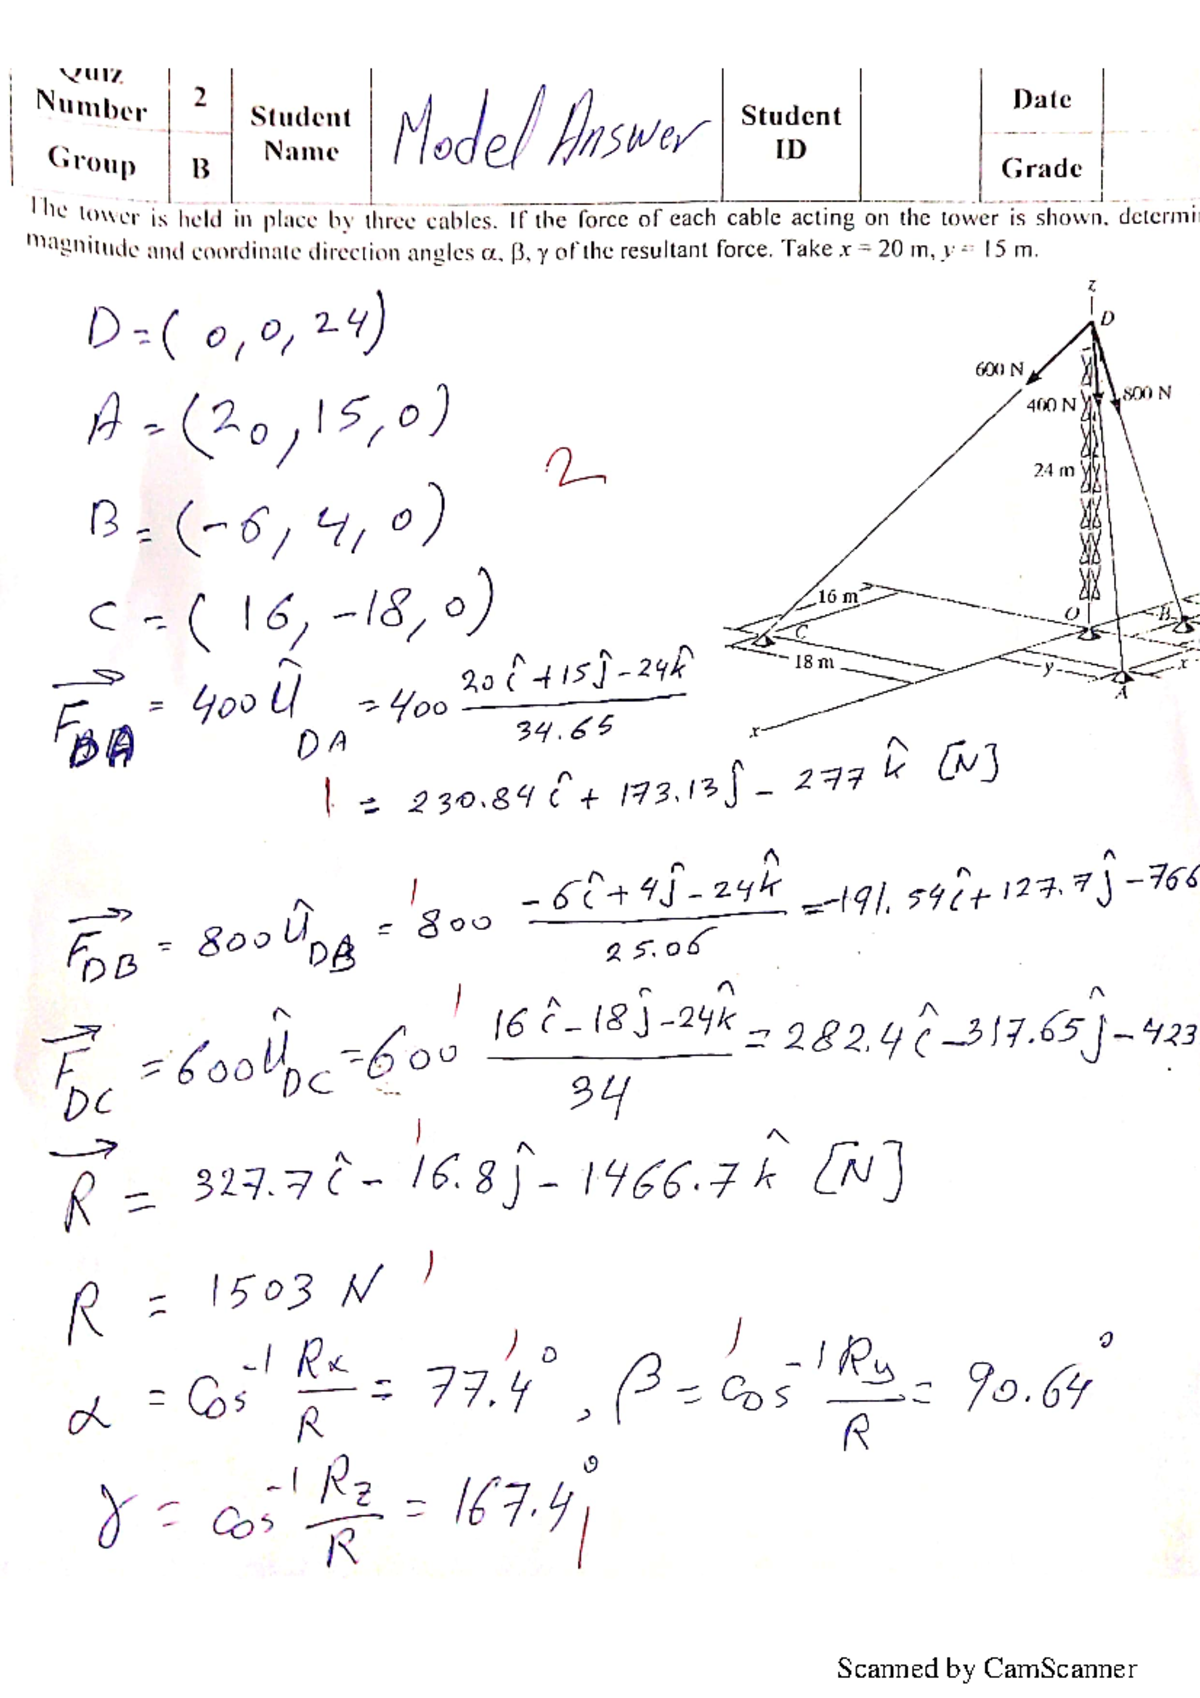 Quiz Number 2 Student Name Model Answer Student ID Date
Group B Grade
The tower is held in place by three cables. If the force of each cable acting on the tower is shown, determi
magnitude and coordinate direction angles α, β, γ of the resultant force. Take x = 20 m, y = 15 m.
D = ( 0, 0, 24)
A = (20, 15, 0)
2
B = (-6, 4, 0)
C = ( 16, -18, 0)
z
D
600 N
400 N
800 N
24 m
16 m
O
B
C
18 m
y
x
A
x
F⃗DA = 400 ûDA = 400 (20î + 15ĵ - 24k̂)/34.65
1 = 230.84 î + 173.13 ĵ - 277 k̂ [N]
F⃗DB = 800 ûDB = 800 (-6î + 4ĵ - 24k̂)/25.06 = -191.54î + 127.7ĵ - 766
1
F⃗DC = 600 ûDC = 600 (16î - 18ĵ - 24k̂)/34 = 282.4î - 317.65ĵ - 423
1
R⃗ = 327.7 î - 16.8 ĵ - 1466.7 k̂ [N]
1
R = 1503 N 1
α = Cos⁻¹ Rx/R = 77.4° 1, β = Cos⁻¹ Ry/R = 90.64° 1
γ = Cos⁻¹ Rz/R = 167.4° 1
Scanned by CamScanner